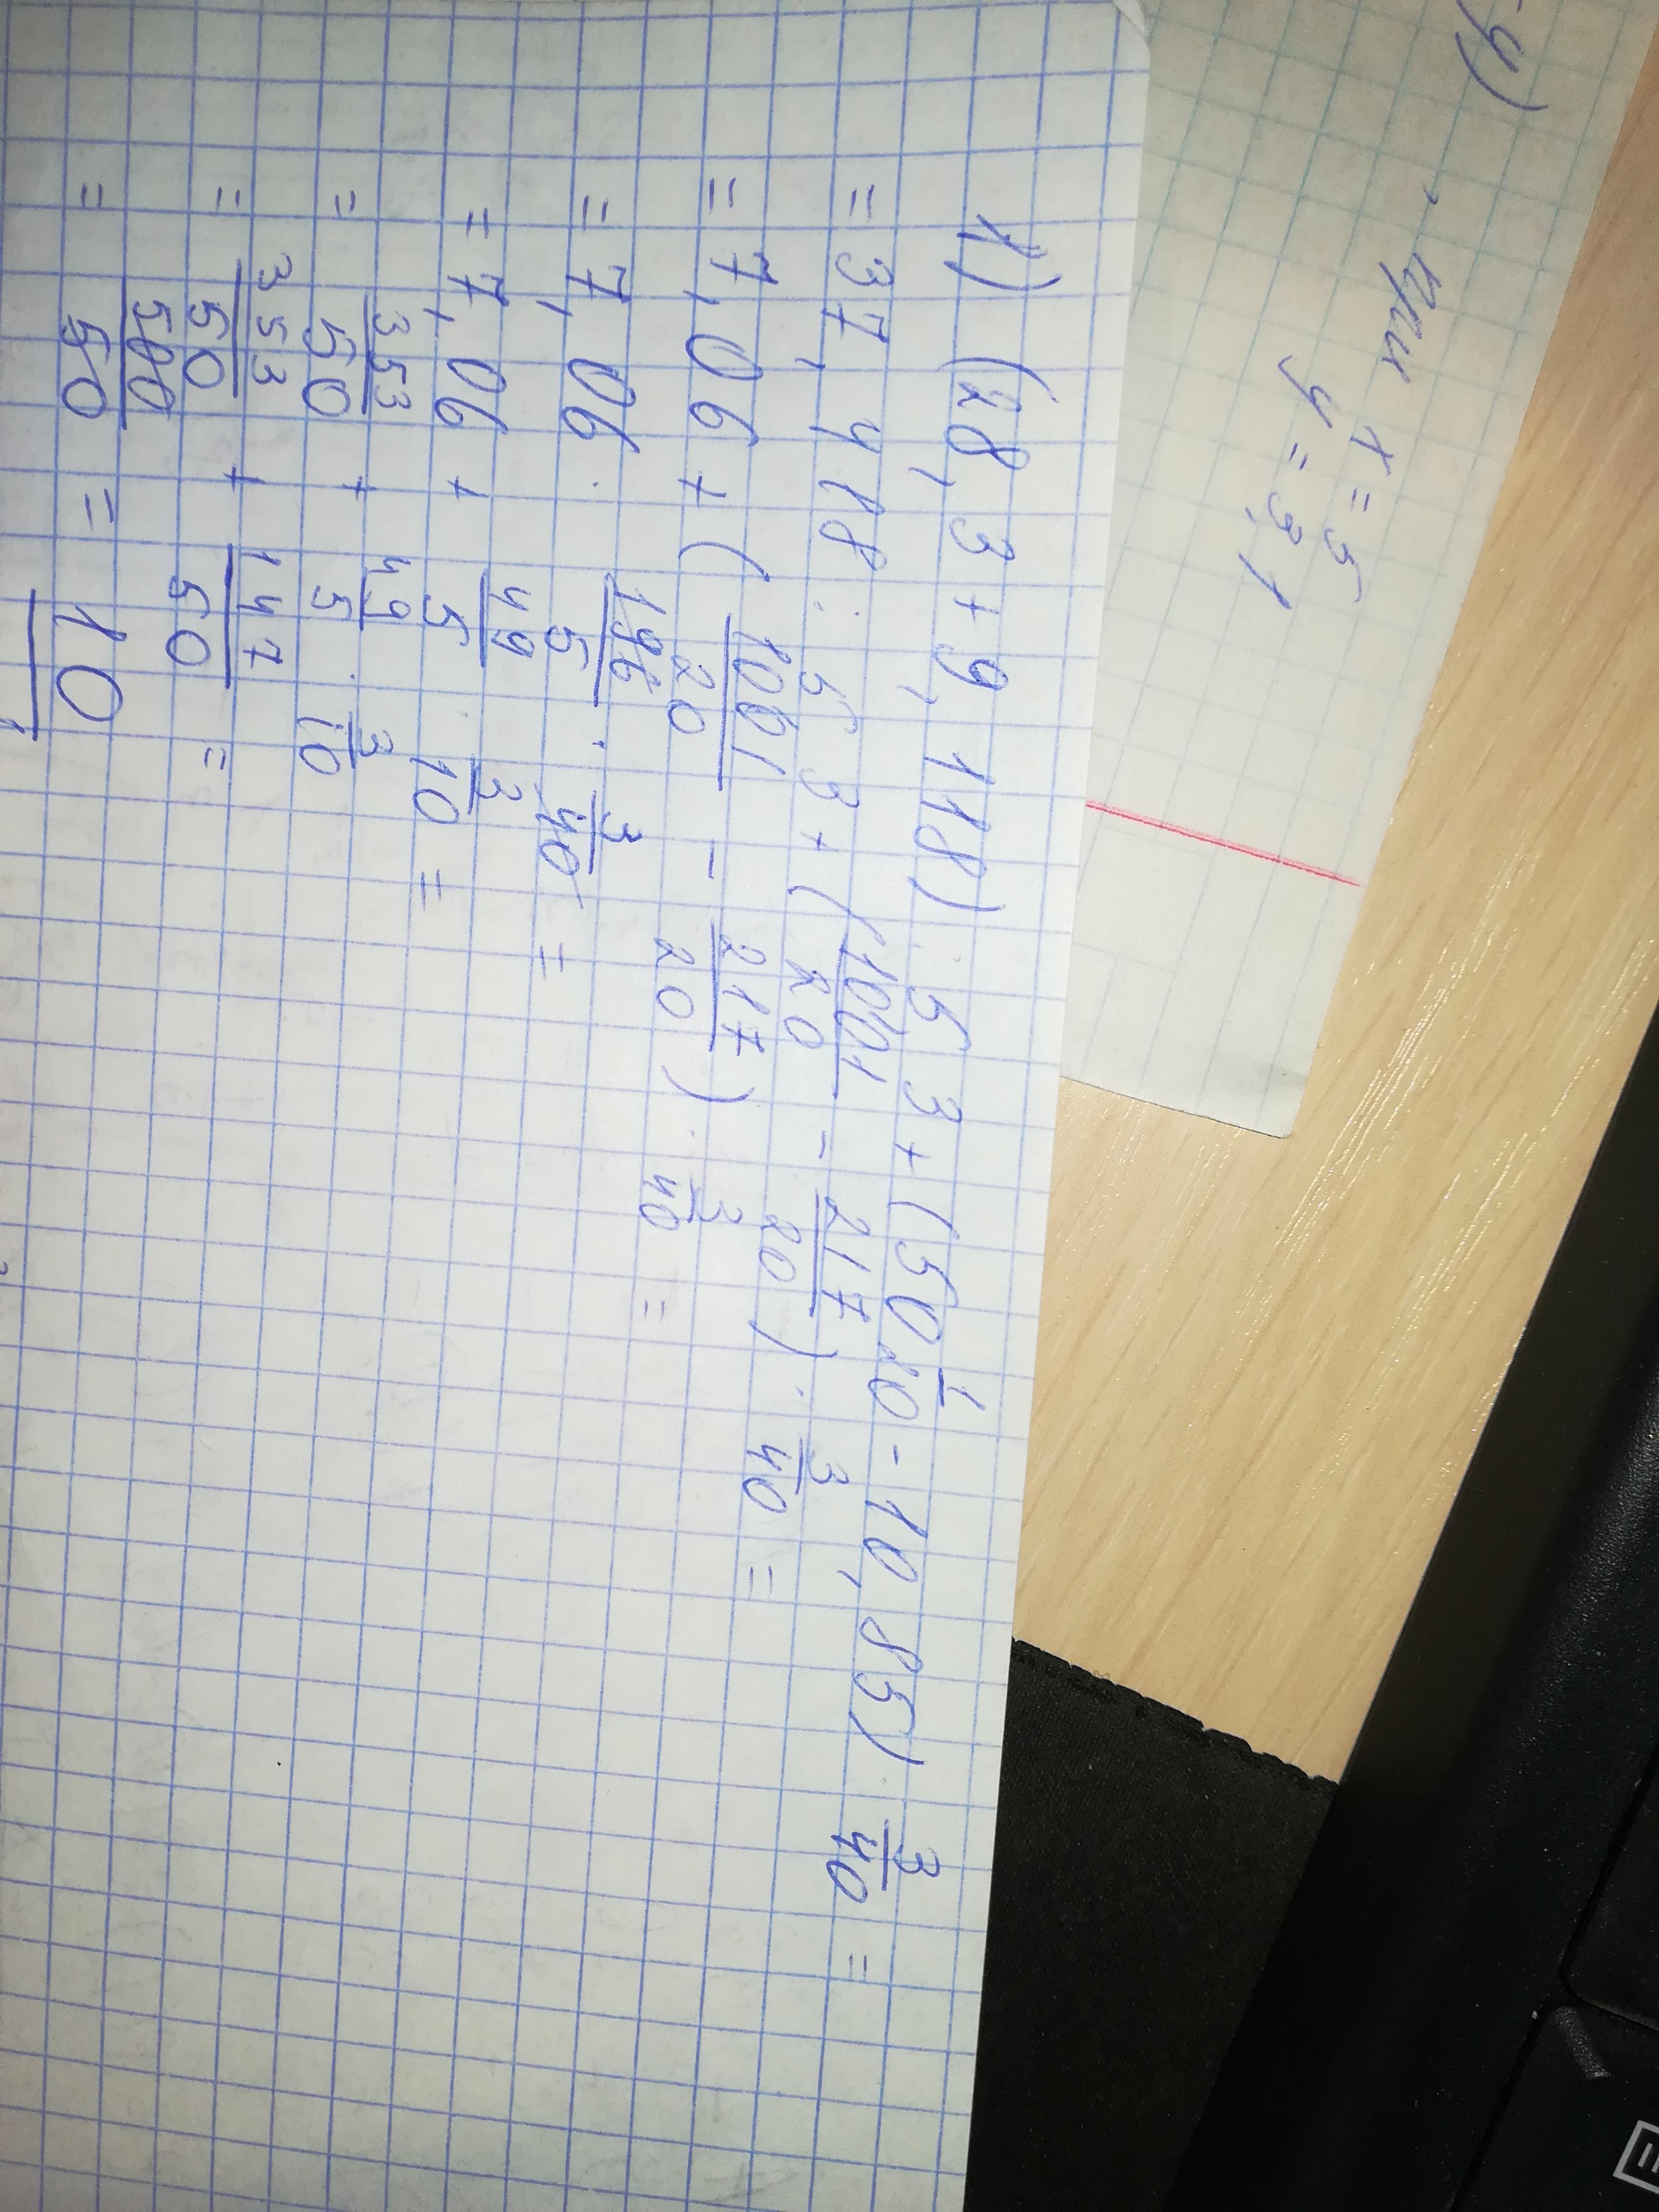 -y)
, при x = 5
y = 3,1
1) (28,3 + 9,118) : 5,3 + (50 1/20 - 10,85) · 3/40 =
= 37,418 : 5,3 + (1001/20 - 217/20) · 3/40 =
= 7,06 + (1001/20 - 217/20) · 3/40 =
= 7,06 · 196/5 · 3/40 =
= 7,06 + 49/5 · 3/10 =
= 353/50 + 49/5 · 3/10
= 353/50 + 147/50 =
= 500/50 = 10